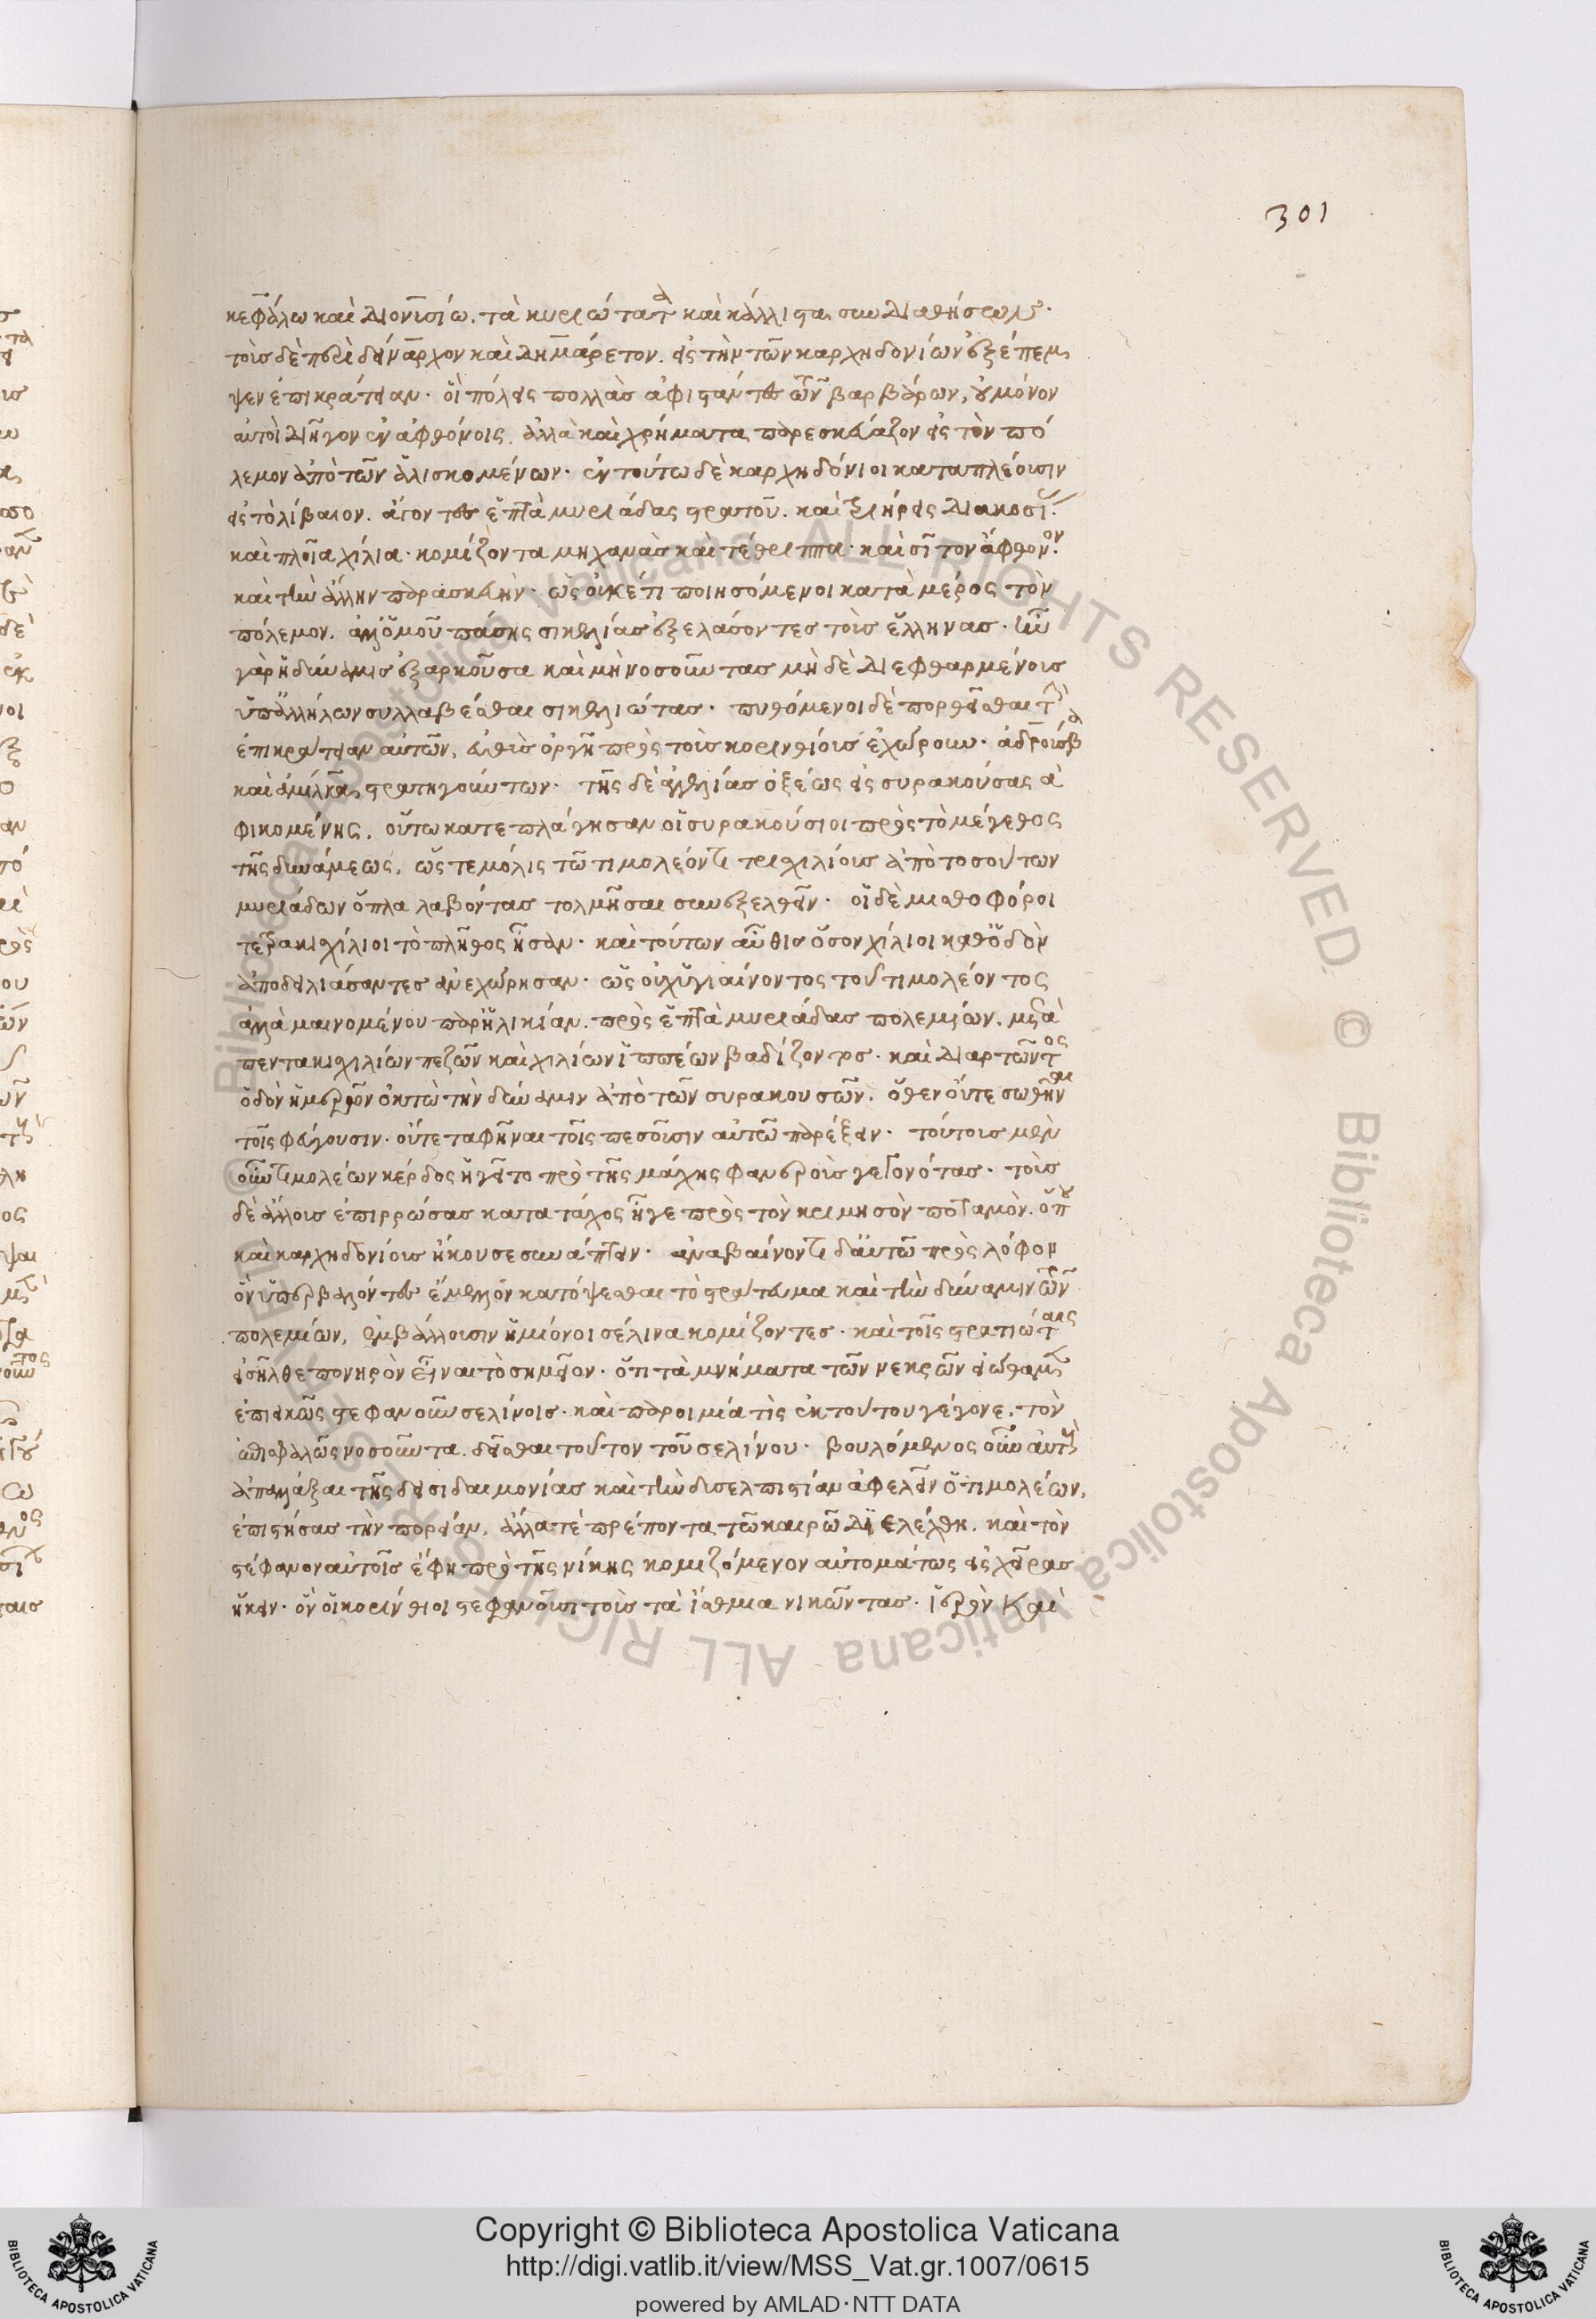 301
κεφάλω καὶ Διονισίω. τὰ κυριώτατα καὶ κάλλιστα συνδιαθήσων.
τοὺς δὲ περὶ δείναρχον καὶ Δημάρετον. εἰς τὴν τῶν καρχηδονίων ἐξέπεμ
ψεν ἐπικράτειαν. οἳ πόλεις πολλὰς ἀφιστάντες τῶν βαρβάρων, οὐ μόνον
αὐτοὶ διῆγον ἐν ἀφθόνοις. ἀλλὰ καὶ χρήματα παρεσκεύαζον εἰς τὸν πό
λεμον ἀπὸ τῶν ἁλισκομένων. ἐν τούτω δὲ καρχηδόνιοι καταπλέουσιν
εἰς τὸ λίβαιον. ἄγοντες ἑπτὰ μυριάδας στρατοῦ. καὶ τριήρεις διακοσίας
καὶ πλοῖα χίλια. κομίζοντα μηχανὰς καὶ τέθριππα. καὶ σῖτον ἄφθονον.
καὶ τὴν ἄλλην παρασκευὴν. ὡς οὐκέτι ποιησόμενοι κατὰ μέρος τὸν
πόλεμον. ἀλλ' ὁμοῦ πάσης σικελίας ἐξελάσοντες τοὺς ἕλληνας. ἦν
γὰρ ἡ δύναμις ἐξαρκοῦσα καὶ μὴ νοσοῦντας μὴ δὲ διεφθαρμένους
ὑπ' ἀλλήλων συλλαβέσθαι σικελιώτας. πυθόμενοι δὲ πορθεῖσθαι τὴν
ἐπικράτειαν αὐτῶν, εὐθὺς ὀργῇ πρὸς τοὺς κορινθίους ἐχώρουν. ἀσδρούβα
καὶ ἀμίλκα στρατηγούντων. τῆς δὲ ἀγγελίας ὀξέως εἰς συρακούσας ἀ
φικομένης. οὕτω κατεπλάγησαν οἱ συρακούσιοι πρὸς τὸ μέγεθος
τῆς δυνάμεως, ὥστε μόλις τῶ τιμολέοντι τρισχιλίους ἀπὸ τοσούτων
μυριάδων ὅπλα λαβόντας τολμῆσαι συνεξελθεῖν. οἱ δὲ μισθοφόροι
τετρακισχίλιοι τὸ πλῆθος ἦσαν. καὶ τούτων αὖθις ὅσον χίλιοι καθ' ὁδὸν
ἀποδειλιάσαντες ἀνεχώρησαν. ὡς οὐχ ὑγιαίνοντος τοῦ τιμολέοντος
ἀλλὰ μαινομένου παρ' ἡλικίαν. πρὸς ἑπτὰ μυριάδας πολεμίων. μετὰ
πεντακισχιλίων πεζῶν καὶ χιλίων ἱππέων βαδίζοντος. καὶ διαρτῶντος
ὁδὸν ἡμερῶν ὀκτὼ τὴν δύναμιν ἀπὸ τῶν συρακουσῶν. ὅθεν οὔτε σωθῆναι
τοῖς φεύγουσιν. οὔτε ταφῆναι τοῖς πεσοῦσιν αὐτῶ παρέξειν. τούτους μὲν
οὖν τιμολέων κέρδος ἡγεῖτο πρὸ τῆς μάχης φανεροὺς γεγονότας. τοὺς
δὲ ἄλλους ἐπιρρώσας κατα τάχος ἦγε πρὸς τὸν κριμησὸν ποταμὸν. ὅπου
καὶ καρχηδονίους ἤκουσε συνάπτειν. ἀναβαίνοντι δ' αὐτῶ πρὸς λόφον
ὃν ὑπερβαλόντες ἔμελλον κατόψεσθαι τὸ στράτευμα καὶ τὴν δύναμιν τῶν
πολεμίων, ἐμβάλλουσιν ἡμίονοι σέλινα κομίζοντες. καὶ τοῖς στρατιώταις
εἰσῆλθε πονηρὸν εἶναι τὸ σημεῖον. ὅτι τὰ μνήματα τῶν νεκρῶν εἰώθαμεν
ἐπιεικῶς στεφανοῦν σελίνοις. καὶ παροιμία τὶς ἐκ τούτου γέγονε. τὸν
ἐπισφαλῶς νοσοῦντα. δεῖσθαι τοῦτον τοῦ σελίνου. βουλόμενος οὖν αὐτοὺς
ἀπαλλάξαι τῆς δεισιδαιμονίας καὶ τὴν δισελπιστίαν ἀφελεῖν ὁ τιμολέων,
ἐπιστήσας τὴν πορείαν, ἄλλα τὲ πρέποντα τῶ καιρῶ διελέχθη. καὶ τὸν
στέφανον αὐτοῖς ἔφη πρὸ τῆς νίκης κομιζόμενον αὐτομάτως εἰς χεῖρας
ἥκειν. ὃν οἱ κορίνθιοι στεφανοῦσι τοὺς τὰ ἴσθμια νικῶντας. ἱερὸν καὶ
Copyright © Biblioteca Apostolica Vaticana
http://digi.vatlib.it/view/MSS_Vat.gr.1007/0615
powered by AMLAD·NTT DATA